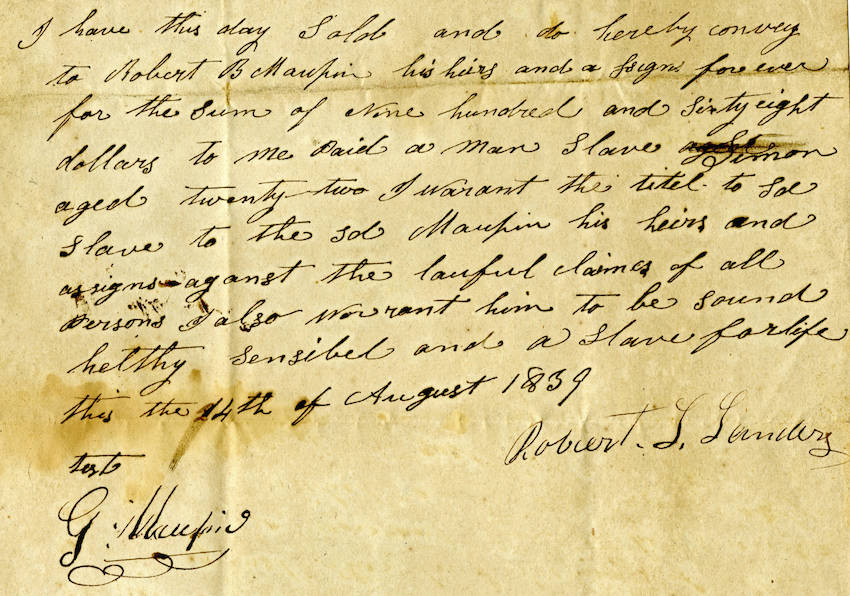 I have this day Sold and do hereby convey
to Robert B Maupin his heirs and assigns forever
for the sum of Nine hundred and Sixty eight
dollars to me Paid a man Slave Simon
aged twenty two I warant the titel to sd
Slave to the sd Maupin his heirs and
assigns aganst the lauful claimes of all
Persons I also warrant him to be sound
helthy sensibel and a slave for life
this the 14th of August 1839
Robert. S. Sanders
test
G. Maupin